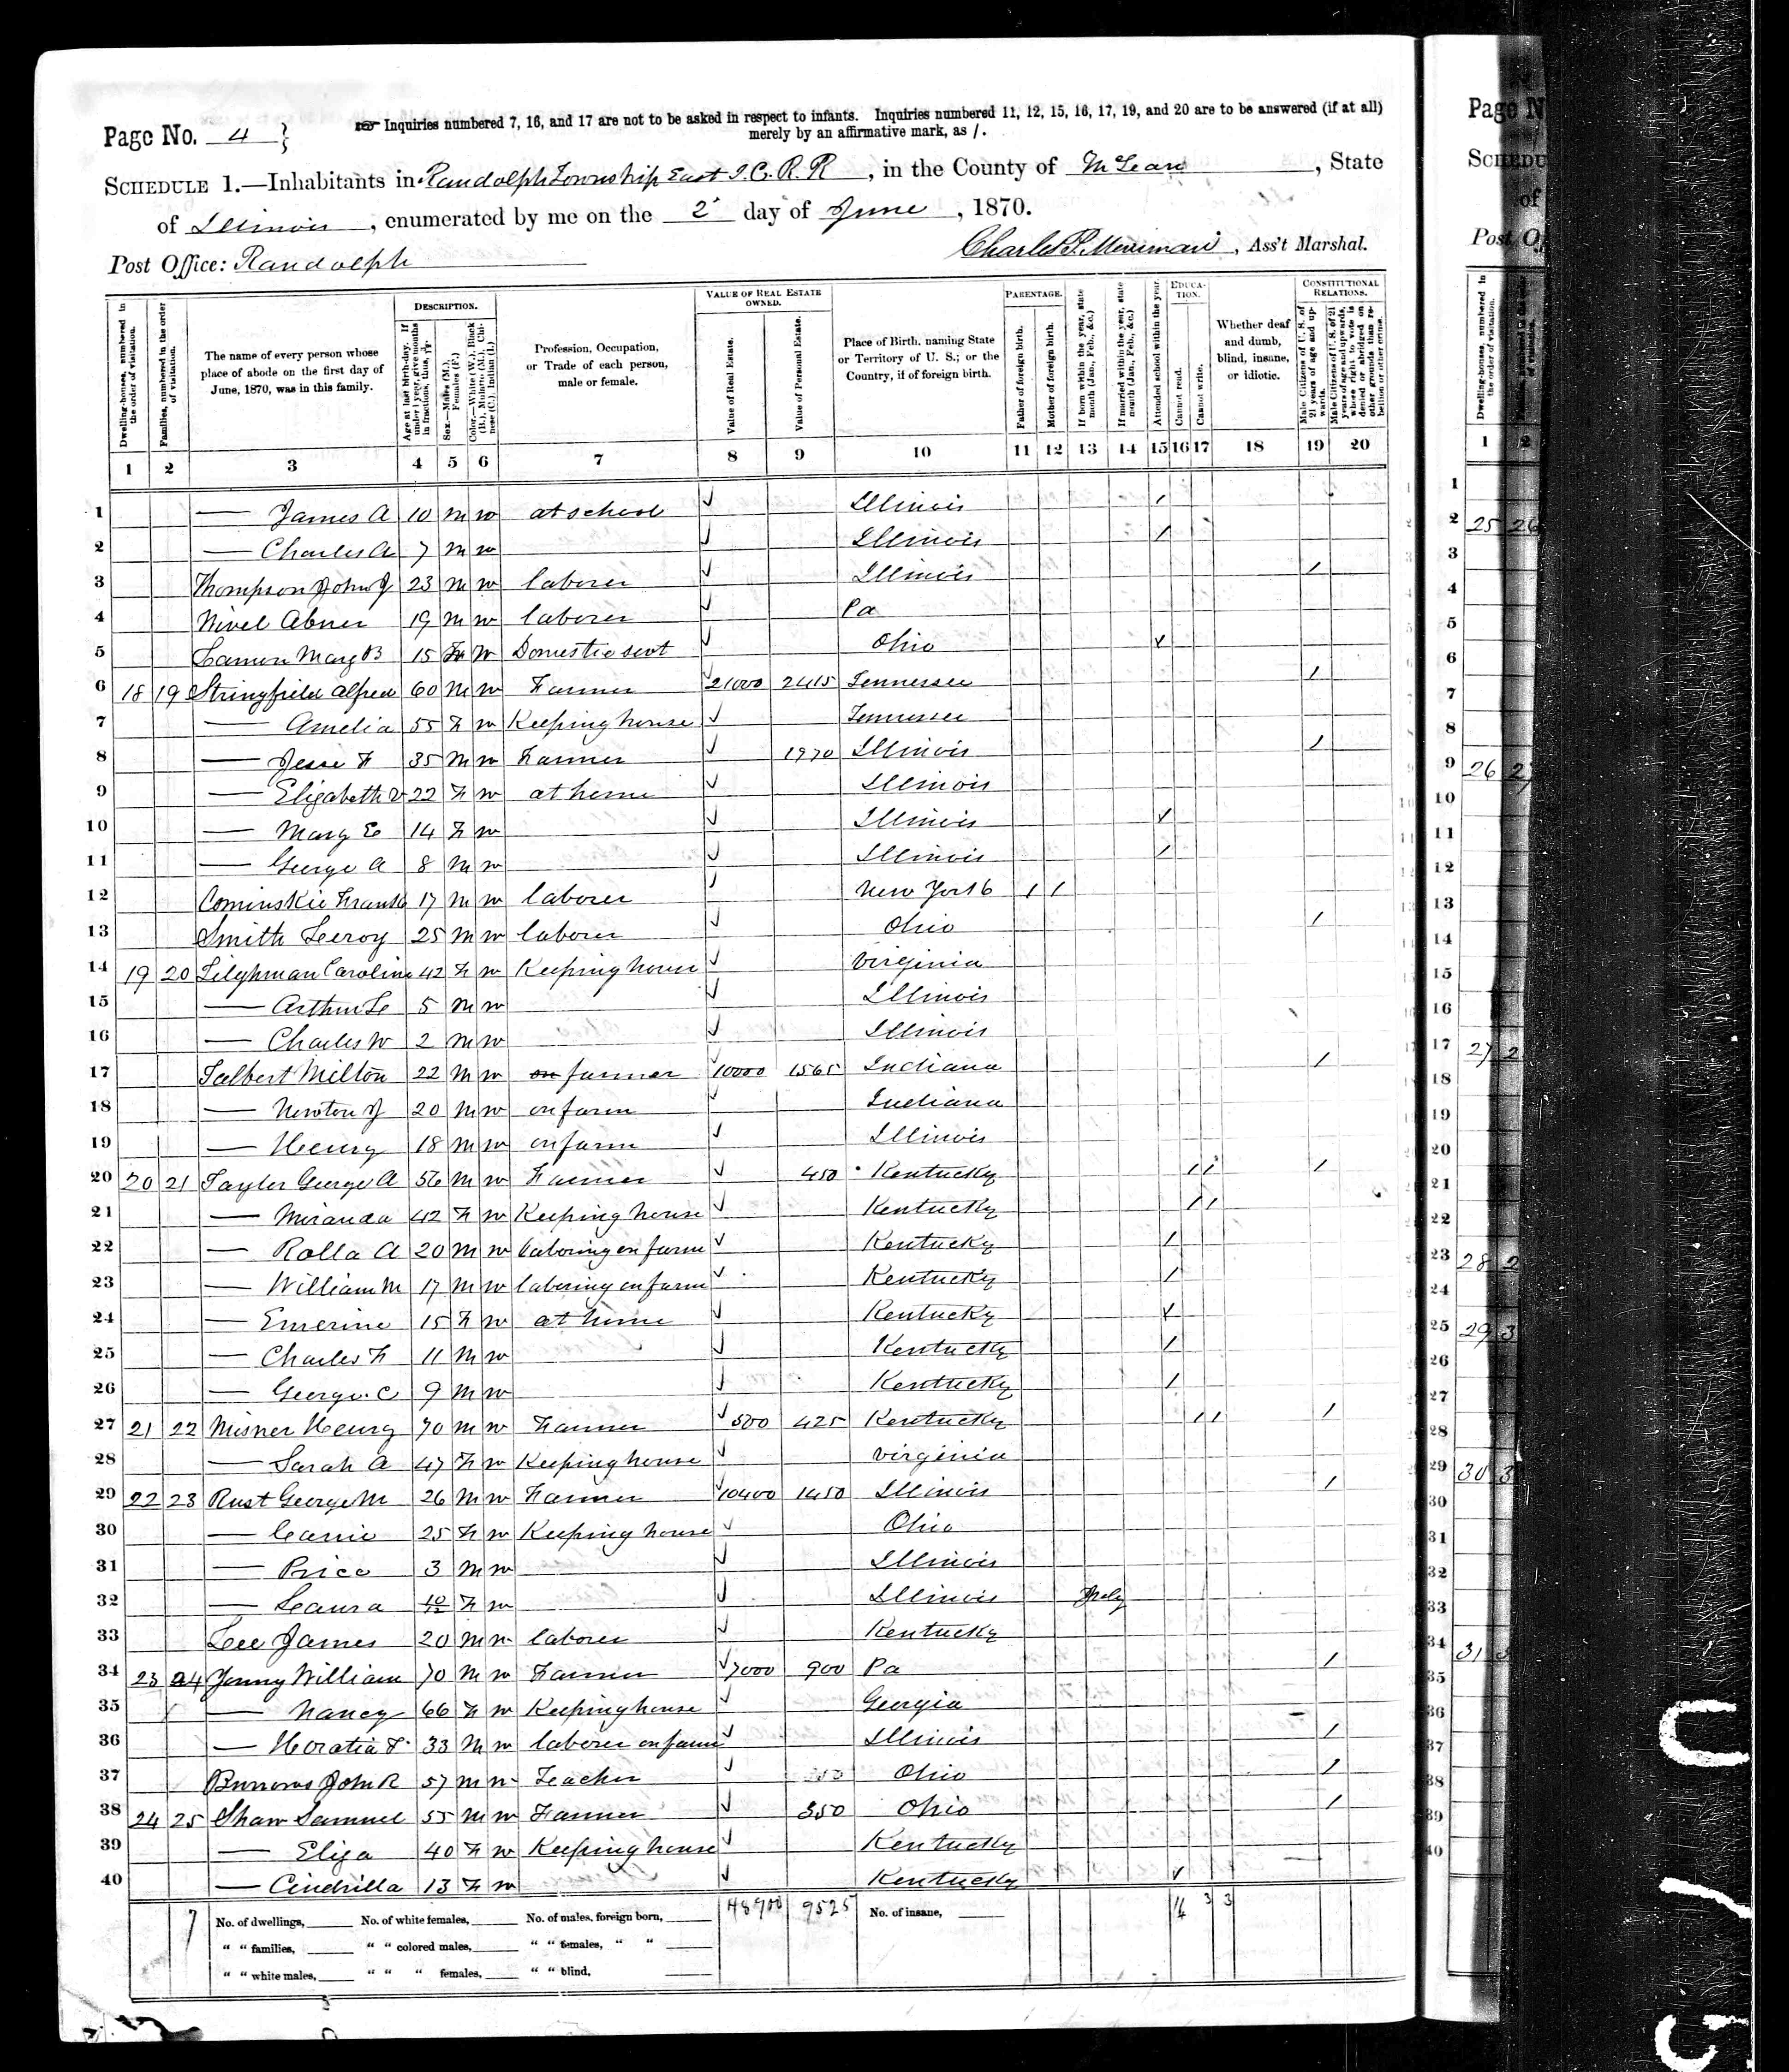 Page No. 4
Inquiries numbered 7, 16, and 17 are not to be asked in respect to infants. Inquiries numbered 11, 12, 15, 16, 17, 19, and 20 are to be answered (if at all)
merely by an affirmative mark, as /.
SCHEDULE 1.—Inhabitants in Randolph Township East I. C. R. R., in the County of McLean, State
of Illinois, enumerated by me on the 2 day of June, 1870.
Post Office: Randolph
Charles P. Merriman, Ass't Marshal.
Dwelling-houses, numbered in the order of visitation.
Families, numbered in the order of visitation.
The name of every person whose place of abode on the first day of June, 1870, was in this family.
DESCRIPTION.
Age at last birth-day. If under 1 year, give months in fractions, thus, 3/12.
Sex.—Males (M.), Females (F.)
Color.—White (W.), Black (B.), Mulatto (M.), Chinese (C.), Indian (I.)
Profession, Occupation, or Trade of each person, male or female.
VALUE OF REAL ESTATE OWNED.
Value of Real Estate.
Value of Personal Estate.
Place of Birth, naming State or Territory of U. S.; or the Country, if of foreign birth.
PARENTAGE.
Father of foreign birth.
Mother of foreign birth.
If born within the year, state month (Jan., Feb., &c.)
If married within the year, state month (Jan., Feb., &c.)
Attended school within the year.
EDUCATION.
Cannot read.
Cannot write.
Whether deaf and dumb, blind, insane, or idiotic.
CONSTITUTIONAL RELATIONS.
Male Citizens of U. S. of 21 years of age and upwards.
Male Citizens of U. S. of 21 years of age and upwards, whose right to vote is denied or abridged on other grounds than rebellion or other crime.
1 2 3 4 5 6 7 8 9 10 11 12 13 14 15 16 17 18 19 20
1 — James A 10 m w at school Illinois /
2 — Charles A 7 m w Illinois /
3 Thompson John J 23 m w laborer Illinois /
4 Nivel Abner 19 m w laborer Pa
5 Lamon Mary B 15 F w Domestic servt Ohio /
6 18 19 Stringfield Alfred 60 m w Farmer 21000 2415 Tennessee /
7 — Amelia 55 F w Keeping house Tennessee
8 — Jesse F 35 m w Farmer 1970 Illinois /
9 — Elizabeth V 22 F w at home Illinois
10 — Mary E 14 F w Illinois /
11 — George A 8 m w Illinois /
12 Cominskie Frank 17 m w laborer New York / /
13 Smith Leroy 25 m w laborer Ohio /
14 19 20 Tilghman Caroline 42 F w Keeping house Virginia
15 — Arthur L 5 m w Illinois
16 — Charles W 2 m w Illinois
17 Talbert Milton 22 m w on farmer 10000 1565 Indiana /
18 — Newton J 20 m w on farm Indiana
19 — Henry 18 m w on farm Illinois
20 20 21 Tayler George A 56 m w Farmer 450 Kentucky / / /
21 — Miranda 42 F w Keeping house Kentucky / /
22 — Rolla A 20 m w laboring on farm Kentucky /
23 — William M 17 m w laboring on farm Kentucky /
24 — Emerine 15 F w at home Kentucky /
25 — Charles F 11 m w Kentucky /
26 — George C 9 m w Kentucky /
27 21 22 Misner Henry 70 m w Farmer 500 425 Kentucky / / /
28 — Sarah A 47 F w Keeping house Virginia
29 22 23 Rust George M 26 m w Farmer 10400 1450 Illinois /
30 — Carrie 25 F w Keeping house Ohio
31 — Price 3 m w Illinois
32 — Laura 10/12 F w Illinois July
33 Lee James 20 m w laborer Kentucky
34 23 24 Jenny William 70 m w Farmer 7000 900 Pa /
35 — Nancy 66 F w Keeping house Georgia
36 — Horatia F 33 m w laborer on farm Illinois /
37 Burrows John R 57 m w Teacher Ohio /
38 24 25 Shaw Samuel 55 m w Farmer 350 Ohio /
39 — Eliza 40 F w Keeping house Kentucky
40 — Cindrilla 13 F w Kentucky /
7 No. of dwellings, No. of white females, No. of males, foreign born, 48900 9525 No. of insane, 14 3 3
" " families, " " colored males, " " females, " "
" " white males, " " " females, " " blind,